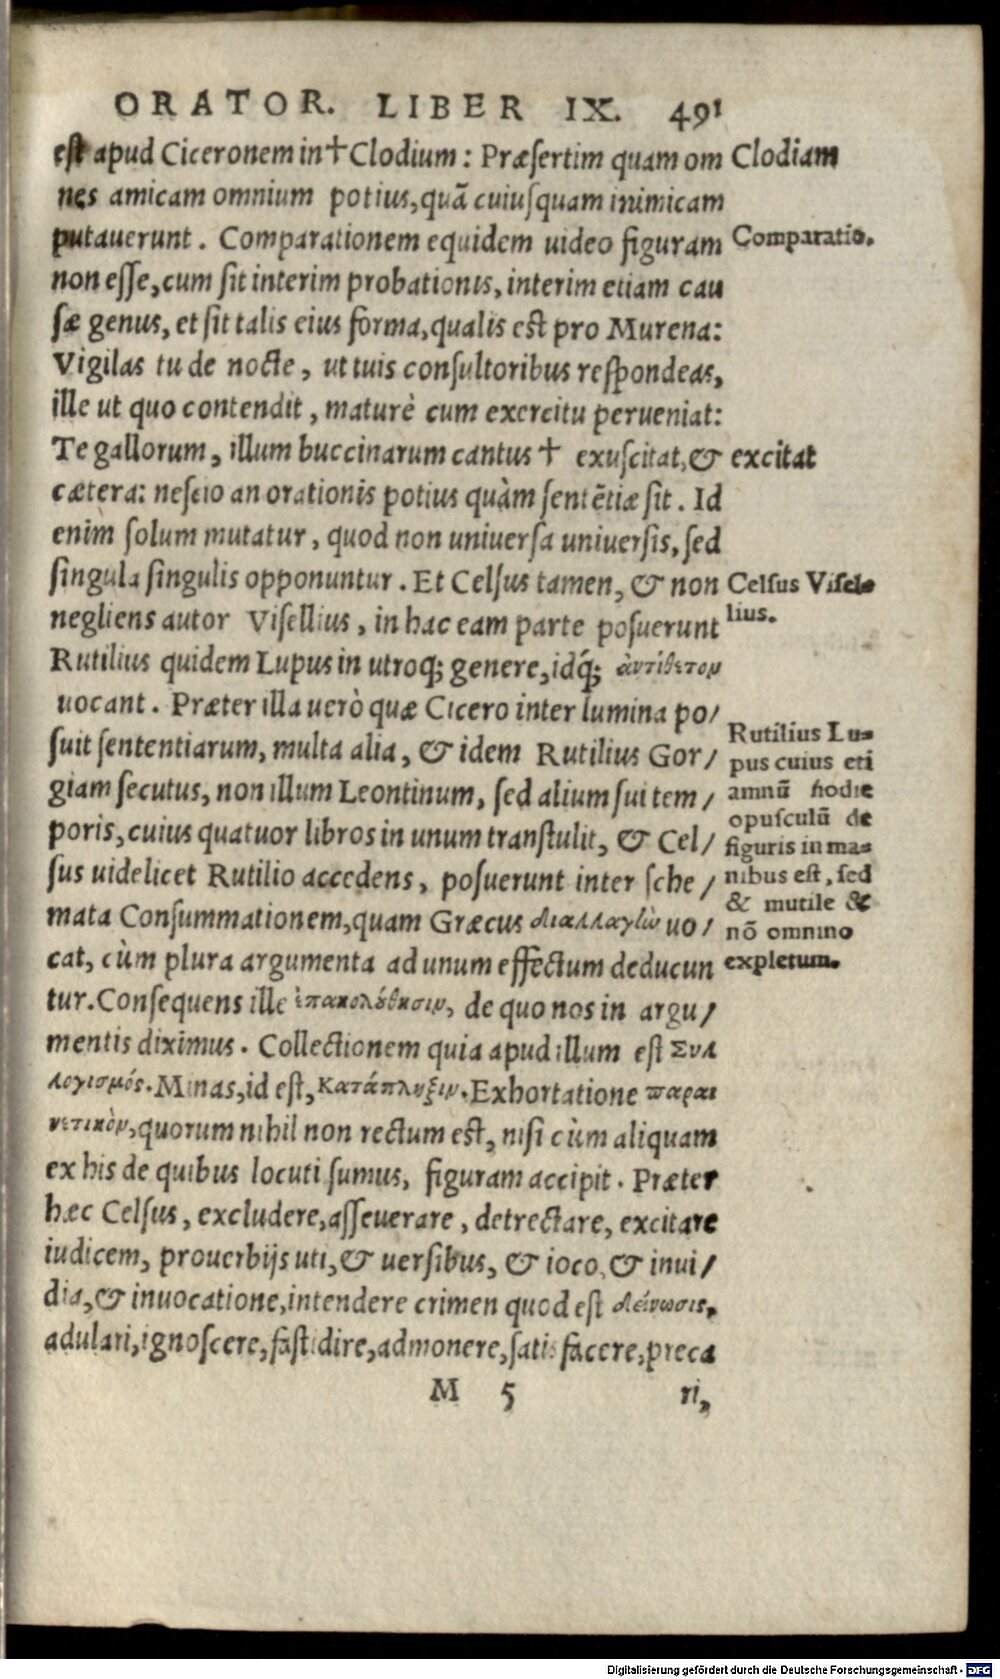 ORATOR. LIBER IX. 491
est apud Ciceronem in † Clodium: Præsertim quam om
nes amicam omnium potius, quã cuiusquam inimicam
putauerunt. Comparationem equidem uideo figuram
non esse, cum sit interim probationis, interim etiam cau
sæ genus, et sit talis eius forma, qualis est pro Murena:
Vigilas tu de nocte, ut tuis consultoribus respondeas,
ille ut quo contendit, maturè cum exercitu perueniat:
Te gallorum, illum buccinarum cantus † exuscitat, &
cætera: nescio an orationis potius quàm sentẽtiæ sit. Id
enim solum mutatur, quod non uniuersa uniuersis, sed
singula singulis opponuntur. Et Celsus tamen, & non
negliens autor Visellius, in hac eam parte posuerunt
Rutilius quidem Lupus in utroq; genere, idq́; ἀντίθετον
uocant. Præter illa uerò quæ Cicero inter lumina po/
suit sententiarum, multa alia, & idem Rutilius Gor/
giam secutus, non illum Leontinum, sed alium sui tem/
poris, cuius quatuor libros in unum transtulit, & Cel/
sus uidelicet Rutilio accedens, posuerunt inter sche/
mata Consummationem, quam Græcus διαλλαγὼ uo/
cat, cùm plura argumenta ad unum effectum deducun
tur. Consequens ille ἐπακολόυθησιν, de quo nos in argu/
mentis diximus. Collectionem quia apud illum est Συλ
λογισμός. Minas, id est, Κατάπληξιν. Exhortatione παραι
νετικὸν, quorum nihil non rectum est, nisi cùm aliquam
ex his de quibus locuti sumus, figuram accipit. Præter
hæc Celsus, excludere, asseuerare, detrectare, excitare
iudicem, prouerbijs uti, & uersibus, & ioco, & inui/
dia, & inuocatione, intendere crimen quod est δείνωσις,
adulari, ignoscere, fastidire, admonere, satisfacere, preca
M 5 ri,
Clodiam
Comparatio.
excitat
Celsus Visel=
lius.
Rutilius Lu=
pus cuius eti
amnũ hodie
opusculũ de
figuris in ma=
nibus est, sed
& mutile &
nõ omnino
expletum.
Digitalisierung gefördert durch die Deutsche Forschungsgemeinschaft - DFG